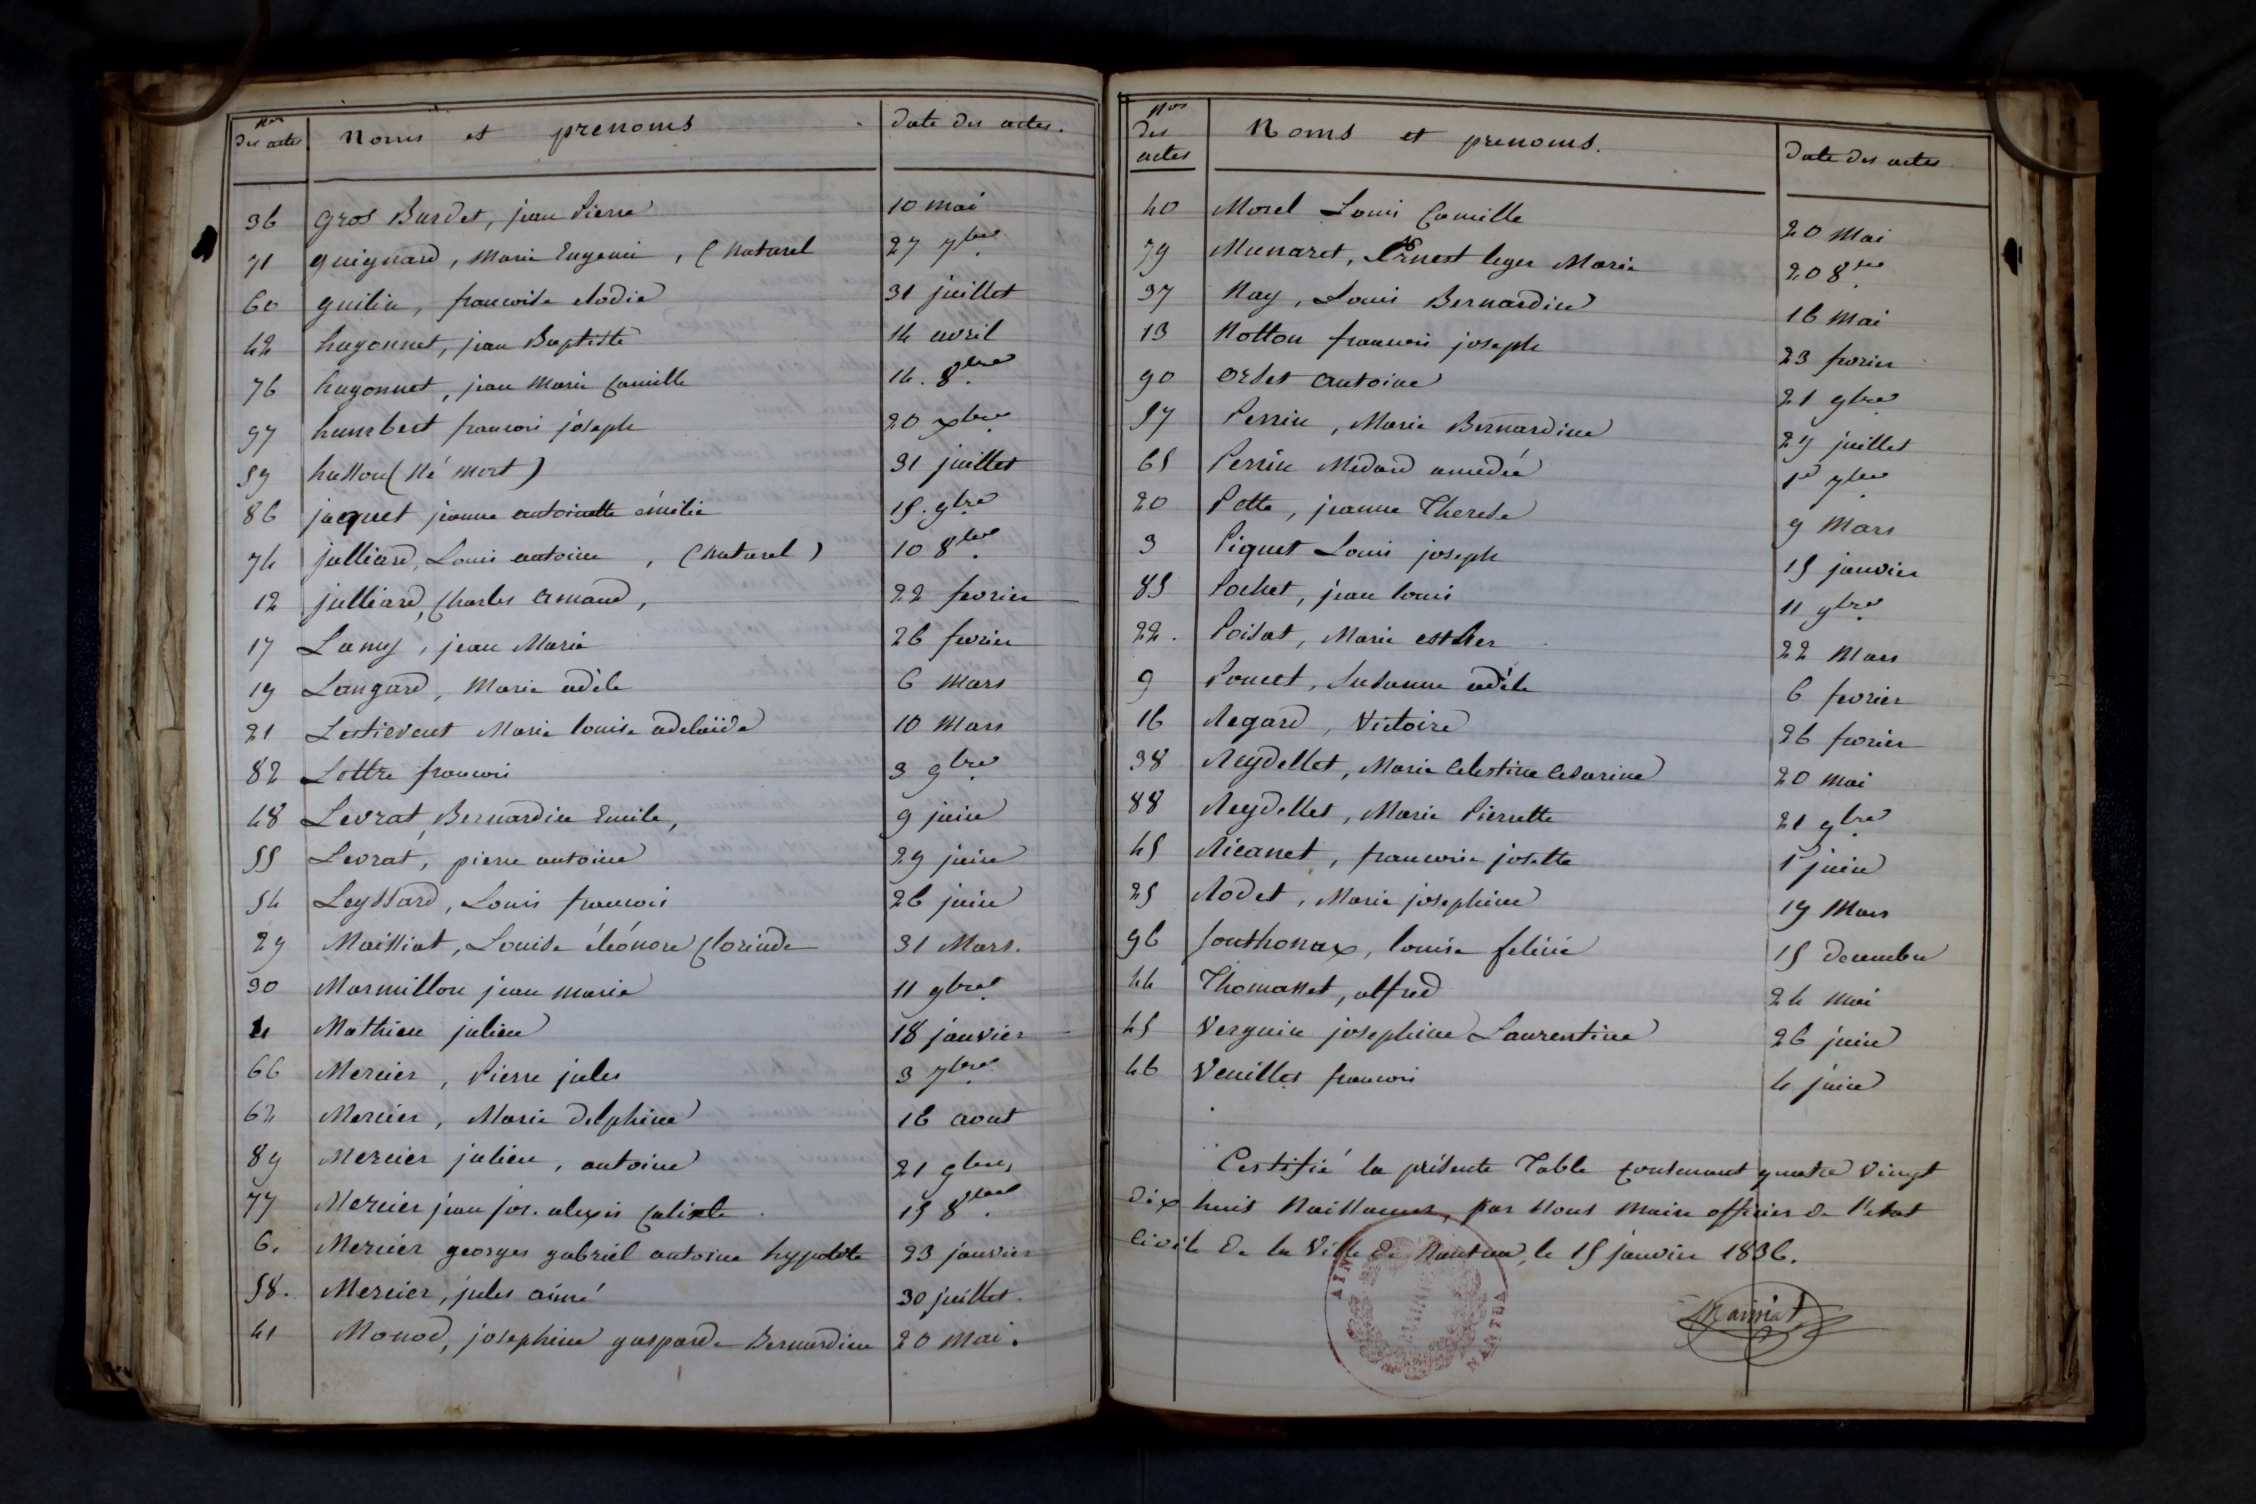 Nos des actes Noms et prenoms Date des actes.
36 Gros Burdet, jean Pierre 10 mai
71 guignard, Marie Eugenie, (Naturel 27 7bre
60 guilin, francoise elodie 31 juillet
42 hugonnet, jean Baptiste 14 avril
76 hugonnet, jean Marie Camille 14. 8bre
97 humbert francois joseph 20 xbre
59 husson (Né mort) 31 juillet
86 jacquet jeanne antoinette émélie 15. 9bre
74 julliard, Louis antoine, (Naturel) 10 8bre
12 julliard, Charles Armand, 22 fevrier
17 Lamy, jean Marie 26 fevrier
19 Langard, Marie adèle 6 Mars
21 Lestievent Marie louise adelaïde 10 Mars
82 Lettre francois 3 9bre
48 Levrat, Bernardin Emile, 9 juin
55 Levrat, pierre antoine 29 juin
54 Leyssard, Louis francois 26 juin
29 Maissiat, Louise éléonore Clorinde 31 Mars.
30 Marmillon jean marie 11 9bre
4 Mathieu julien 18 janvier
66 Mercier, Pierre jules 3 7bre
62 Mercier, Marie delphine 16 aout
89 Mercier julien, antoine 21 9bre
77 Mercier jean jos. alexis Calixte 15 8bre
6. Mercier georges gabriel antoine hyppolite 23 janvier
58. Mercier, jules aimé 30 juillet.
41 Monod, josephine gasparde Bernardine 20 Mai.
Nos des actes Noms et prenoms. Date des actes
40 Morel Louis Camille 20 Mai
79 Munaret, Ernest leger Marie 20 8bre
37 Nay, Louis Bernardin 16 Mai
13 Notton francois joseph 23 fevrier
90 orset antoine 21 9bre
57 Perrin, Marie Bernardine 27 juillet
65 Perrin Médard amedée 1er 7bre
20 Pette, jeanne Therese 9 Mars
3 Piquet Louis joseph 15 janvier
85 Pochet, jean louis 11 9bre
22. Poisat, Marie esther 22 Mars
9 Poncet, Susanne adèle 6 fevrier
16 Regard, Victoire 26 fevrier
38 Reydellet, Marie Celestine Cesarine 20 Mai
88 Reydellet, Marie Pierrette 21 9bre
45 Ricanet, francoise josette 1er juin
25 Rodet, Marie josephine 19 Mars
96 Sonthonax, louise felicie 15 decembre
44 Thomasset, alfred 24 mai
45 Verguin josephine Laurentine 26 juin
46 Veuillet francois 4 juin
Certifié la présente Table contenant quatre vingt
dix huit Naissances, par Nous Maire officier de l'etat
Civil de la Ville de Nantua, le 15 janvier 1836.
Maissiat
AIN
NANTUA